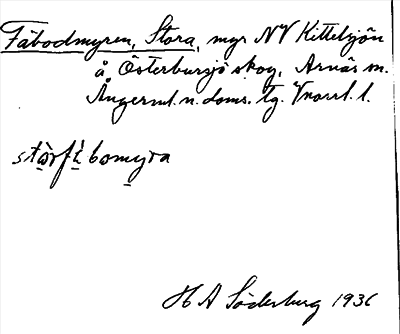 Fäbodmyren, Stora, myr NV Kittelsjön
å Österbursjö skog, Arnäs sn.
Ångerml. n. doms. tg. Vnorrl. l.
stòrfä̀bomyra
H A Söderburg 1936